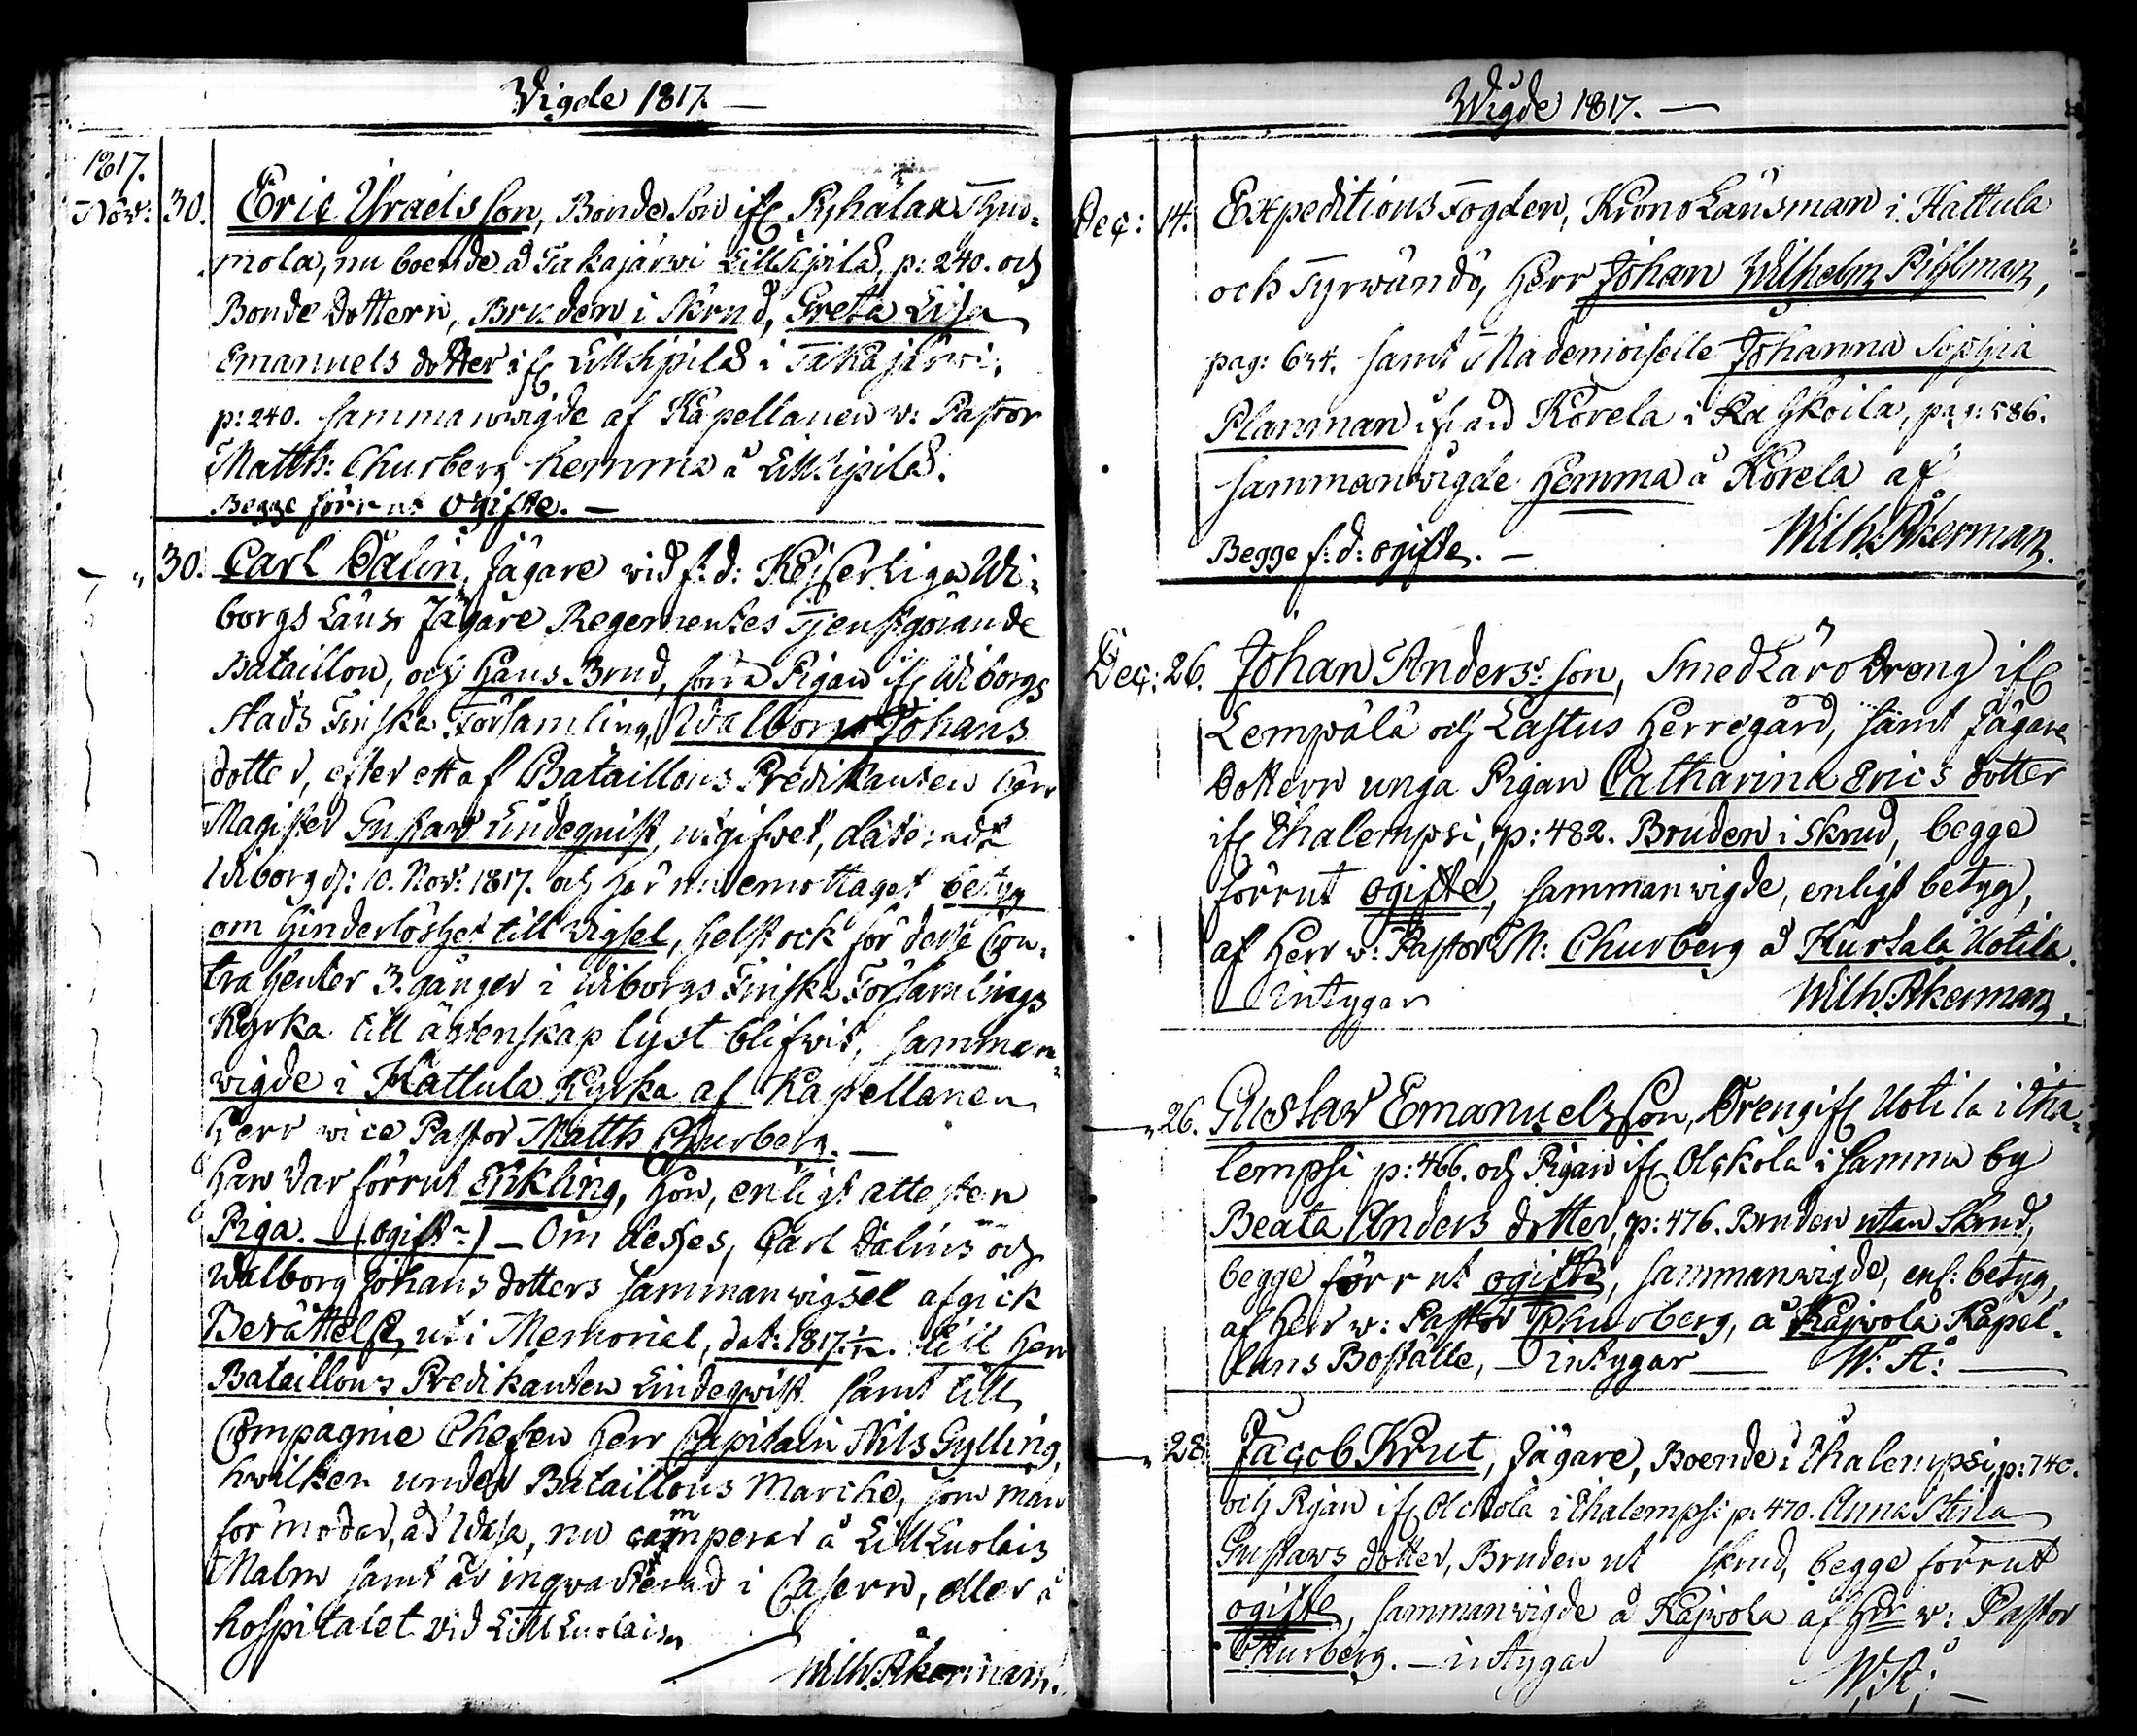 Vigde 1817. —
1817.
Nov: 30. Eric Israels son, Bonde Son ifr Pyhälax Thuo-
mola, nu boende å Takajärwi Lillsipilä, p: 240. och
Bonde Dottern, Bruden i Skrud, Greta Lisa
Emanuels dotter ifr Lillsipilä i Takajärwi,
p: 240. sammanwigde af Kapellanen v: Pastor
Matth: Churberg hemma å Lillsipilä.
Begge förrut ogifte. —
" 30. Carl Dalin, Jägare wid f: d: Kejserliga Wi-
borgs Läns Jägare Regementes Tjenstgörande
Bataillon, och Hans Brud, förra Pigan ifr Wiborgs
Stads Finska Församling, Walborg Johans
dotter, efter ett af Bataillons Predikanten Herr
Magister Gustaw Lindequist, utgifwet, dateradt
Wiborg d: 10. Nov: 1817. och här nu emottaget betyg
om hinderlöshet till wigsel, helst ock för desse Con-
trahenter 3. gånger i Wiborgs Finska Församlings
Kyrka till äktenskap lyst blifwit, samman-
wigde i Hattula Kyrka af Kapellanen
Herr vice Pastor Matth Churberg. —
Han war förrut Enkling, Hon, enligt attesten
Piga. — (ogift) — Om desses, Carl Dalins och
Walborg Johans dotters sammanwigsel afgick
Berättelse uti Memorial, dat: 1817 till Herr
Bataillons Predikanten Lindeqwist samt till
Compagnie Chefen Herr Capitain Nils Gylling,
hwilken under Bataillons Marche, som man
förmodar, åt Wasa, nu camperar å Lill Luolais
Malm samt är inqwarterad i Casern, eller å
hospitalet vid Lill Luolais
Wilh: Åkerman.
Wigde 1817. —
Dec: 14. Expeditions Fogden, Krono Länsman i Hattula
och Tyrwändö, Herr Johan Wilhelm Pihlman,
pag: 634. samt Mademoiselle Johanna Sophia
Planman ifrån Korela i Raskoila, pag: 586.
sammanwigde hemma å Korela af
Begge f: d: ogifte. — Wilh: Åkerman.
Dec: 26. Johan Anders: son, Smed Läro Dreng ifr
Lempälä och Lastus Herregård, samt Jägare
Dottern unga Pigan Catharina Erics dotter
ifr Ihalempsi, p: 482. Bruden i skrud, begge
förrut ogifte, sammanwigde, enligt betyg,
af Herr v: Pastor M: Churberg å Kurtala Uotila.
— intygar Wilh. Åkerman.
— " 26. Gustav Emanuels son, Dreng ifr Uotila i Iha-
lempsi p: 466. och Pigan ifr Olckola i samma by
Beata Anders dotter, p: 476. Bruden utan Skrud,
begge förrut ogifte, sammanwigde, enl: betyg,
af Herr v: Pastor Churberg, å Kajwola Kapel-
lans Boställe, — intygar — W: Å: —
— " 28. Jacob Krut, Jägare, Boende i Ihalempsi, p: 740.
och Pigan ifr Olckola i Ihalempsi p: 470. Anna Stina
Gustaws dotter, Bruden ut skrud, begge förrut
ogifte, sammanwigde å Kajwola af Herr v: Pastor
Churberg. — intygar
W: Å: —